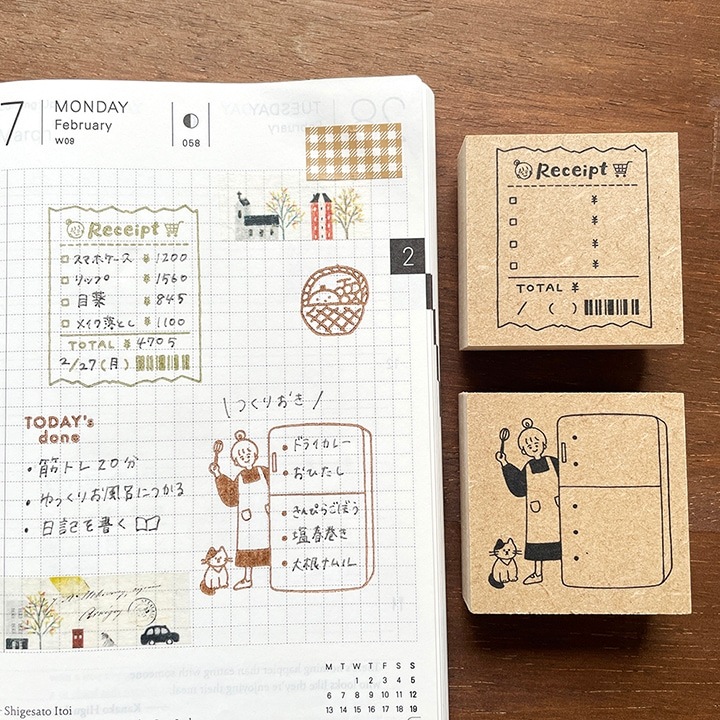 7 MONDAY
February
W09
058
2
Receipt
スマホケース ¥1200
リップ ¥1560
目薬 ¥845
メイク落とし ¥1100
TOTAL ¥4705
2/27(月)
\つくりおき/
TODAY's
done
・筋トレ20分
・ゆっくりお風呂につかる
・日記を書く
・ドライカレー
・おひたし
・きんぴらごぼう
・塩春巻き
・大根ナムル
M T W T F S S
1 2 3 4 5
6 7 8 9 10 11 12
13 14 15 16 17 18 19
Shigesato Itoi
Receipt
¥
¥
¥
¥
TOTAL ¥
/ ( )